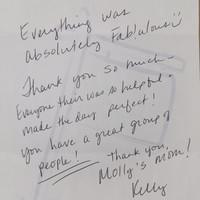 Everything was
absolutely Fab!alous!
Thank you so much -
Everyone their was so helpful -
made the day perfect!
You have a great group of
people!
Thank you,
Molly's Mom!
Kelly